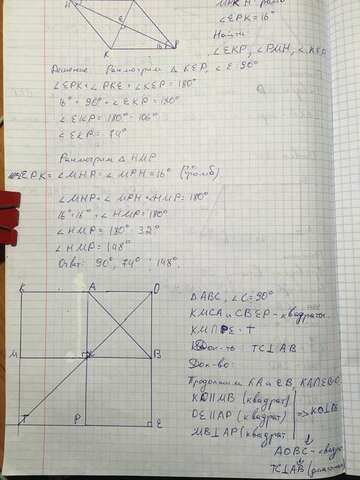 МНРК ромб
∠EPK=16°
Найти
∠EKP, ∠PMH, ∠KEP
H
E
K
16°
P
Решение. Рассмотрим Δ KEP, ∠E=90°
∠EPK+∠PKE+∠KEP=180°
16°+90°+∠EKP=180°
∠EKP=180°-106°
∠EKP=74°
Рассмотрим Δ HMP
∠EPK=∠MHP=∠MPH=16° (ромб)
∠MHP+∠MPH+∠HMP=180°
16°+16°+∠HMP=180°
∠HMP=180°-32°
∠HMP=148°
Ответ: 90°, 74°, 148°.
K A O
M B
T P E
ΔABC, ∠C=90°
KMCA и CBEP-квадраты
Док-ть TC⊥AB
Док-во:
KO||MB (квадрат)
OE||AP (квадрат)
MB⊥AP (квадрат
=> KO⊥OE
AOBC-квадрат
TC⊥AB